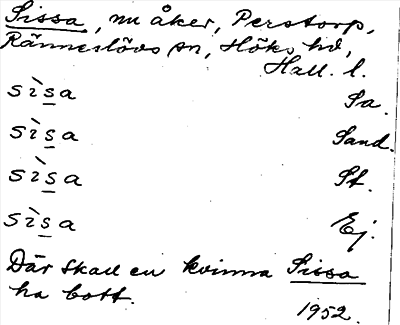 Sissa, nu åker, Perstorp,
Ränneslövs sn, Höks hd,
Hall. l.
sìs̲a Sa.
sìs̲a Sand.
sìs̲a St.
sìs̲a Ej.
Där skall en kvinna Sissa
ha bott.
1952.